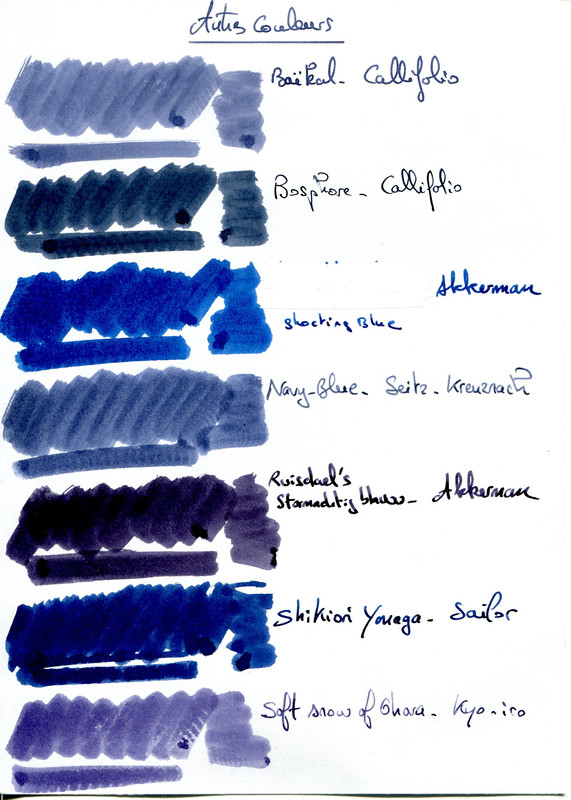 Autres Couleurs
Baïkal - Callifolio
Bosphore - Callifolio
Akkerman
Shocking Blue
Navy-Blue - Seitz-Kreuznach
Ruisdael's
blauw - Akkerman
Shikiori Yonaga - Sailor
Soft snow of Ohara - Kyo-iro